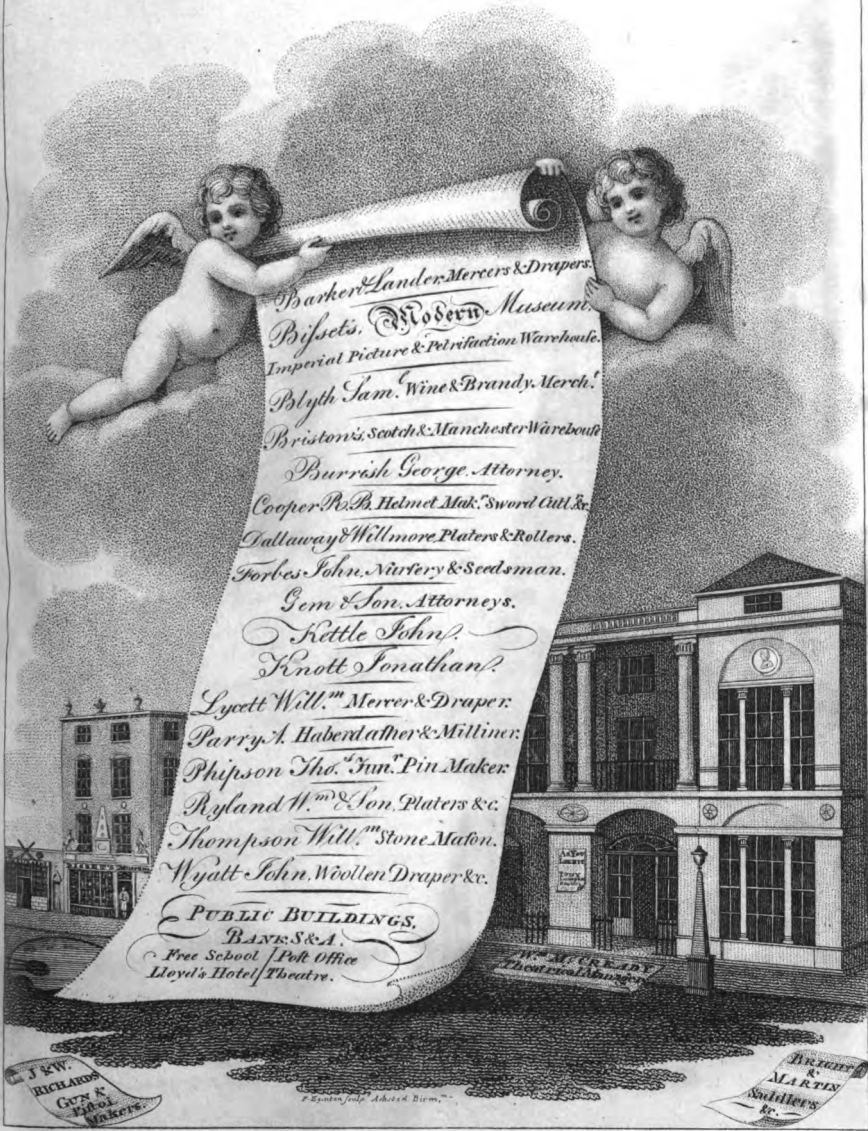 Barker & Lander, Mercers & Drapers.
Biſset's, Modern Museum,
Imperial Picture & Petrifaction Warehouſe.
Blyth Sam.l Wine & Brandy Merch.t
Briston's, Scotch & Manchester Warehouſe
Burrish George, Attorney.
Cooper R. B. Helmet Mak.r Sword Cutl.r &c.
Dallaway & Willmore, Platers & Rollers.
Forbes John, Nurſery & Seedsman.
Gem & Son, Attorneys.
Kettle John.
Knott Jonathan.
Lycett Will.m Mercer & Draper.
Parry A. Haberdaſher & Milliner.
Phipson Tho.s Jun.r Pin Maker.
Ryland W.m & Son, Platers &c.
Thompson Will.m Stone Maſon.
Wyatt John, Woollen Draper &c.
PUBLIC BUILDINGS,
BANK, S & A.
Free School / Poſt Office
Lloyd's Hotel / Theatre.
As You
Like it
W.m McCREADY
Theatrical Manager
J & W.
RICHARDS
GUN &
Piſtol
Makers.
BRIGHT
&
MARTIN
Saddlers
&c.
Sculp.t Ashsted Birm.m